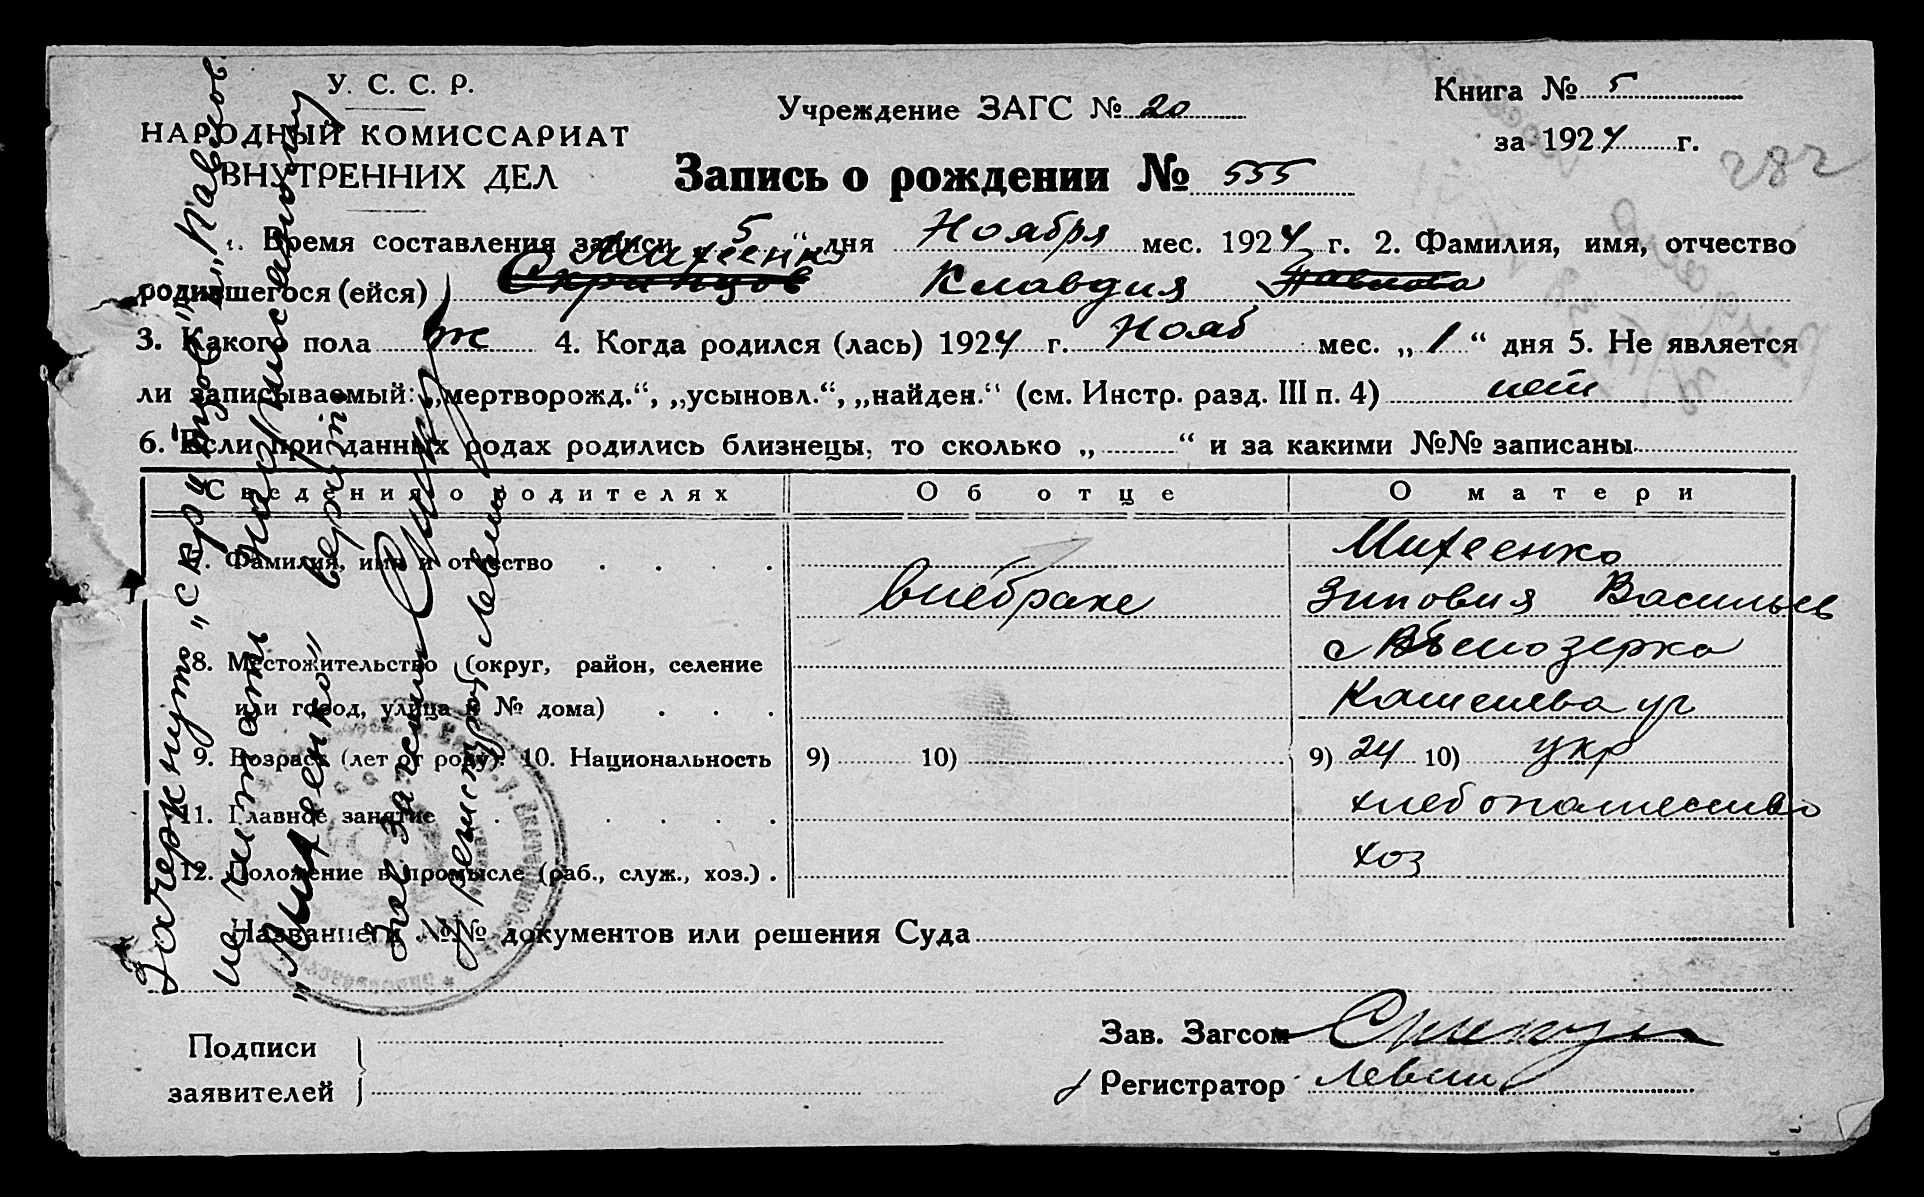 У. С. С. Р.
НАРОДНЫЙ КОМИССАРИАТ
ВНУТРЕННИХ ДЕЛ
Учреждение ЗАГС № 20
Книга № 5
за 1924 г.
282
Запись о рождении № 555
1. Время составления записи 5 “ дня Ноября мес. 1924 г. 2. Фамилия, имя, отчество
Михеенко
родившегося (ейся) Скрипцов Клавдия Павлова
3. Какого пола ж 4. Когда родился (лась) 1924 г. Нояб мес. „ 1 “ дня 5. Не является
ли записываемый: „мертворожд.“, „усыновл.“, „найден.“ (см. Инстр. разд. III п. 4) нет
6. Если при данных родах родились близнецы, то сколько „ “ и за какими №№ записаны
Сведения о родителях Об отце О матери
7. Фамилия, имя и отчество
внебраке
Михеенко
Зиновия Васильев
8. Местожительство (округ, район, селение
или город, улица и № дома)
с Белозерка
9. Возраст (лет от роду). 10. Национальность 9) 10) 9) 24 10) укр
11. Главное занятие хлебопашество
12. Положение в промысле (раб., служ., хоз.) хоз
Название и №№ документов или решения Суда
Подписи
заявителей
Зав. Загсом
Регистратор Левин
Зачеркнуто „Скрипцов“ и „Павлов“
не читать Надписаному
„Михеенко“ верить
Зав Загсом
Регистратор Левин